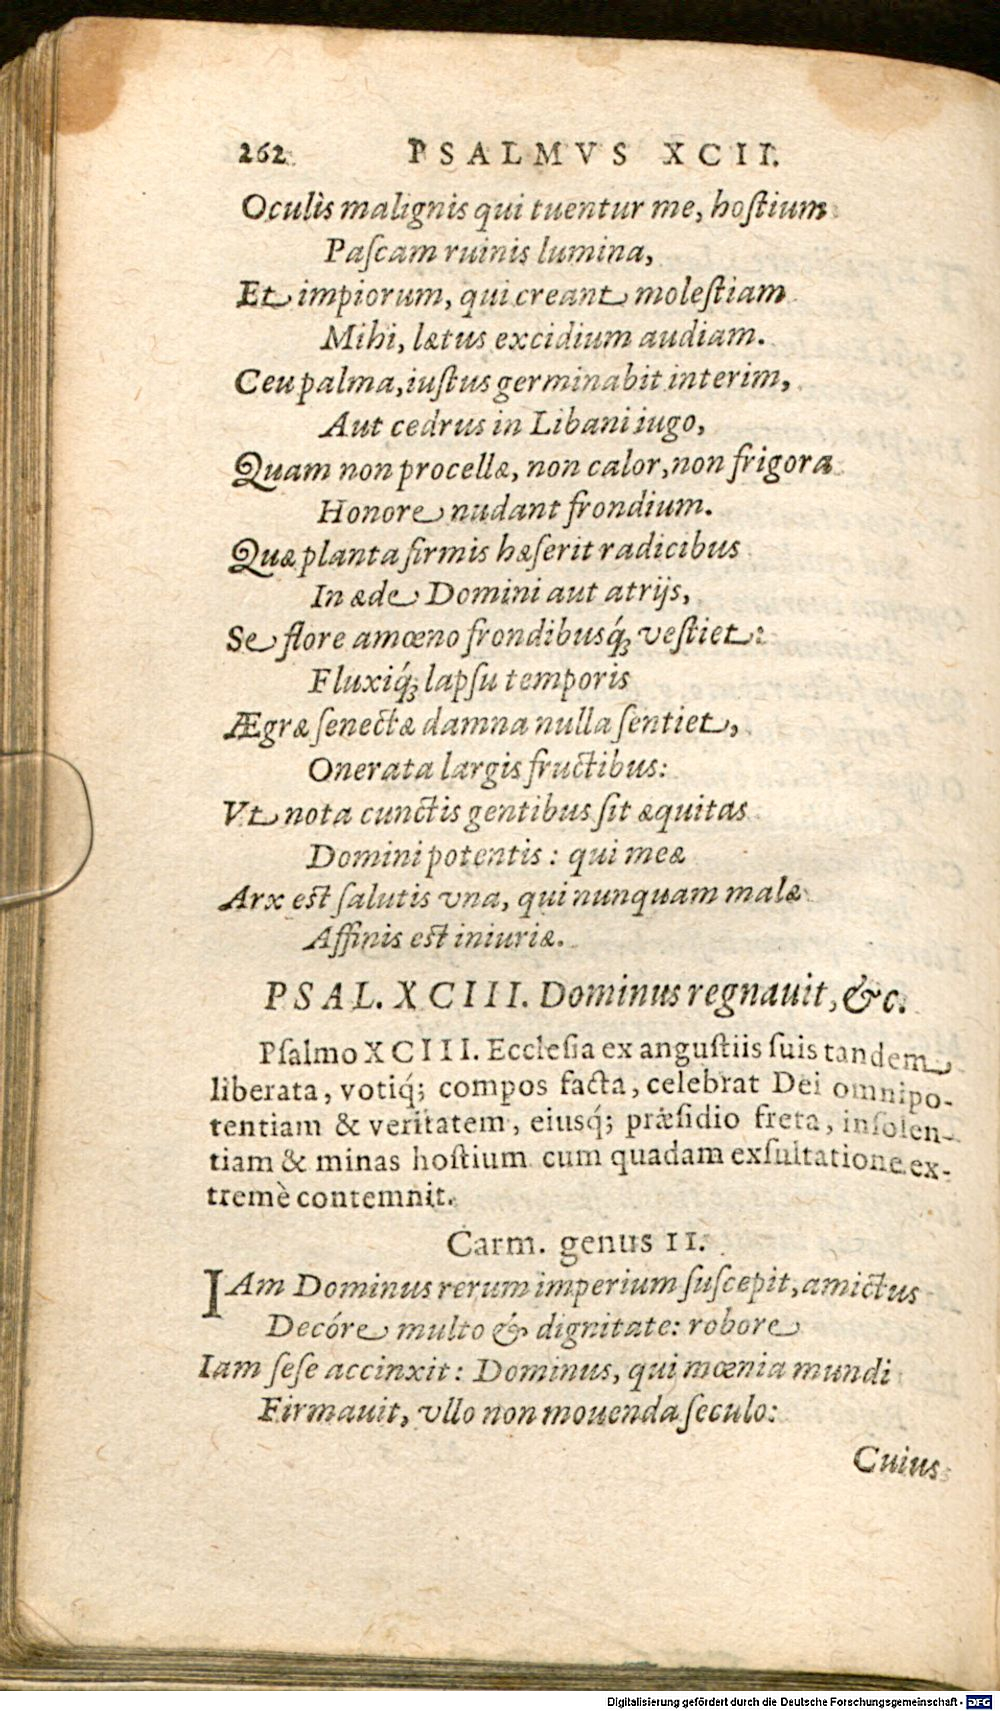 262 PSALMVS XCII.
Oculis malignis qui tuentur me, hoſtium
Paſcam ruinis lumina,
Et impiorum, qui creant moleſtiam
Mihi, lætus excidium audiam.
Ceu palma, iuſtus germinabit interim,
Aut cedrus in Libani iugo,
Quam non procellæ, non calor, non frigora
Honore nudant frondium.
Quæ planta firmis hæſerit radicibus
In æde Domini aut atrijs,
Se flore amœno frondibusq́; veſtiet:
Fluxiq́; lapſu temporis
Ægræ ſenectæ damna nulla ſentiet,
Onerata largis fructibus:
Vt nota cunctis gentibus ſit æquitas
Domini potentis: qui meæ
Arx eſt ſalutis vna, qui nunquam malæ
Affinis eſt iniuriæ.
PSAL. XCIII. Dominus regnauit, &c.
Pſalmo XCIII. Eccleſia ex anguſtiis ſuis tandem
liberata, votiq́; compos facta, celebrat Dei omnipo-
tentiam & veritatem, eiusq́; præſidio freta, inſolen-
tiam & minas hoſtium cum quadam exſultatione ex-
tremè contemnit.
Carm. genus II.
IAm Dominus rerum imperium ſuſcepit, amictus
Decóre multo & dignitate: robore
Iam ſeſe accinxit: Dominus, qui mœnia mundi
Firmauit, vllo non mouenda ſeculo:
Cuius
Digitalisierung gefördert durch die Deutsche Forschungsgemeinschaft - DFG